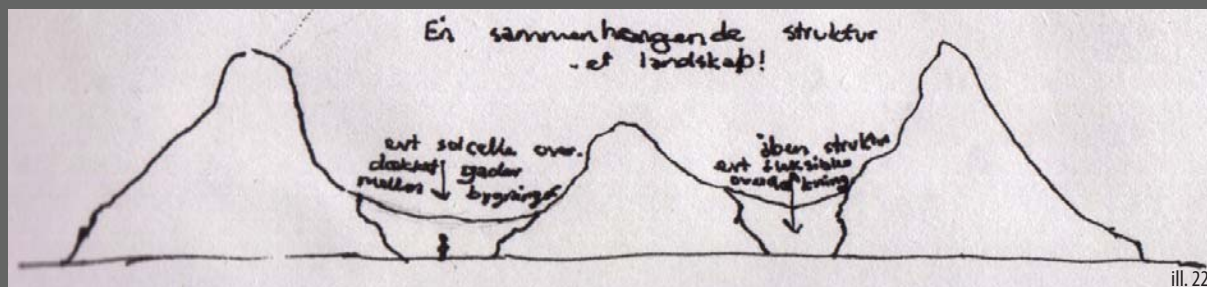 En sammenhængende struktur
- et landskab!
evt solcelle over.
dækket gader
mellem bygninger
åben struktur
evt fleksible
overdækning
ill. 22